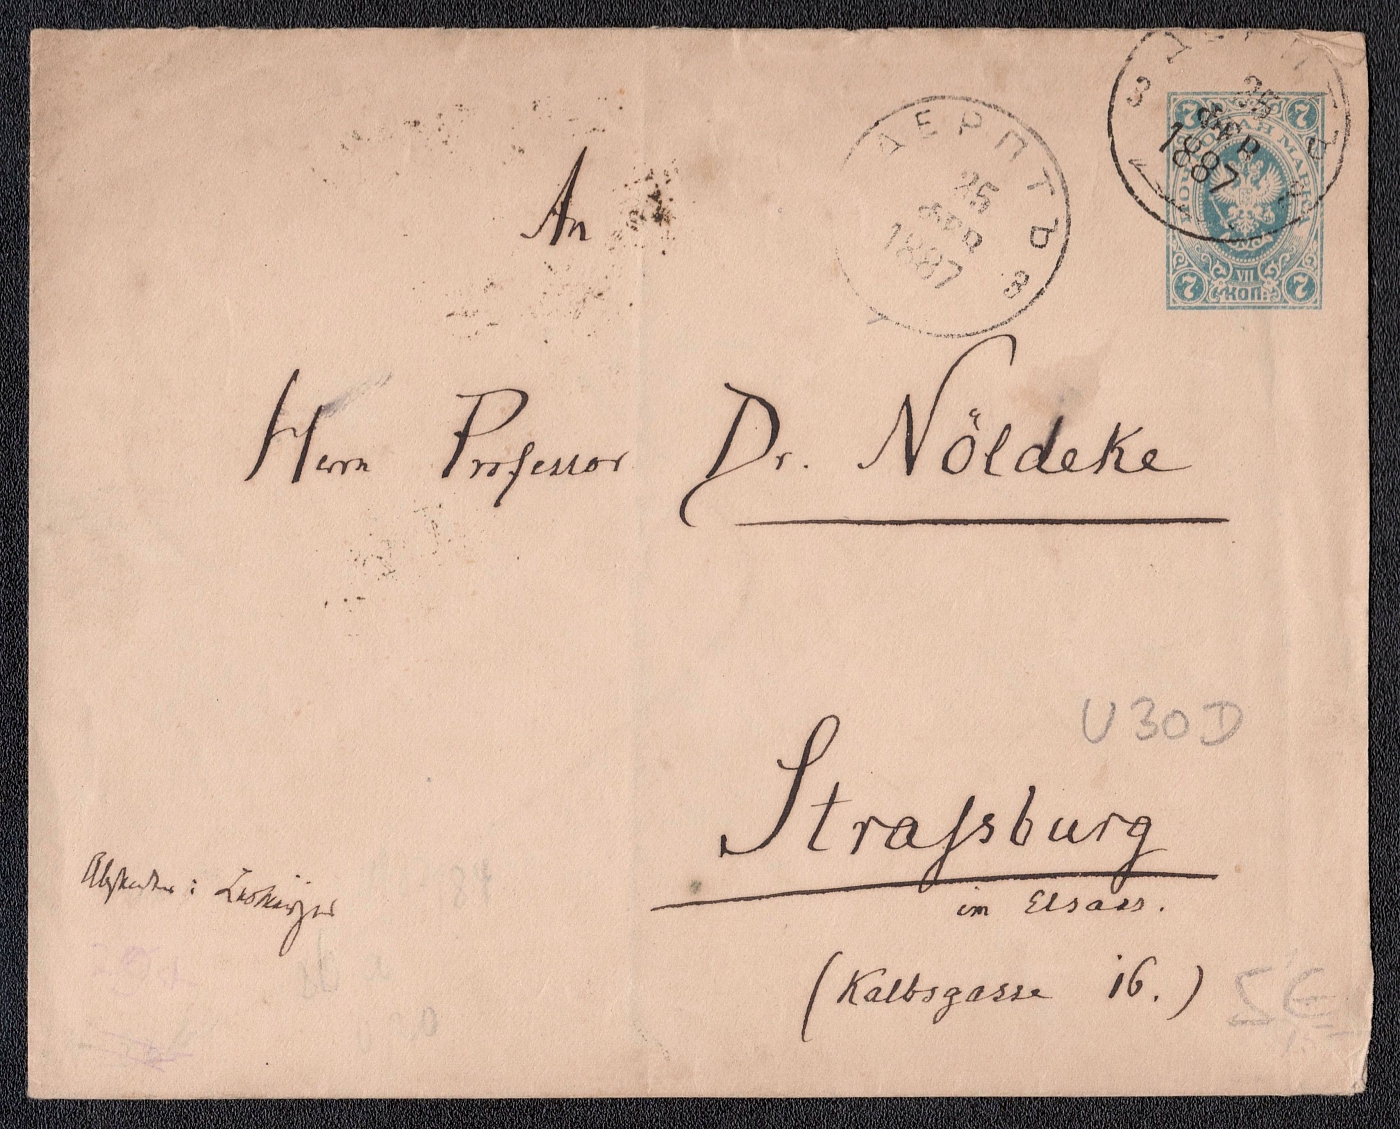 ДЕРПТЪ 3
25
ФЕВ
1887
ДЕРПТЪ 3
25
ФЕВ
1887
7 ПОЧТОВАЯ МАРКА 7
VII
7 КОП. 7
An
Herrn Professor Dr. Nöldeke
U30D
Straſsburg
im Elsass.
(Kalbsgasse 16.)
5€